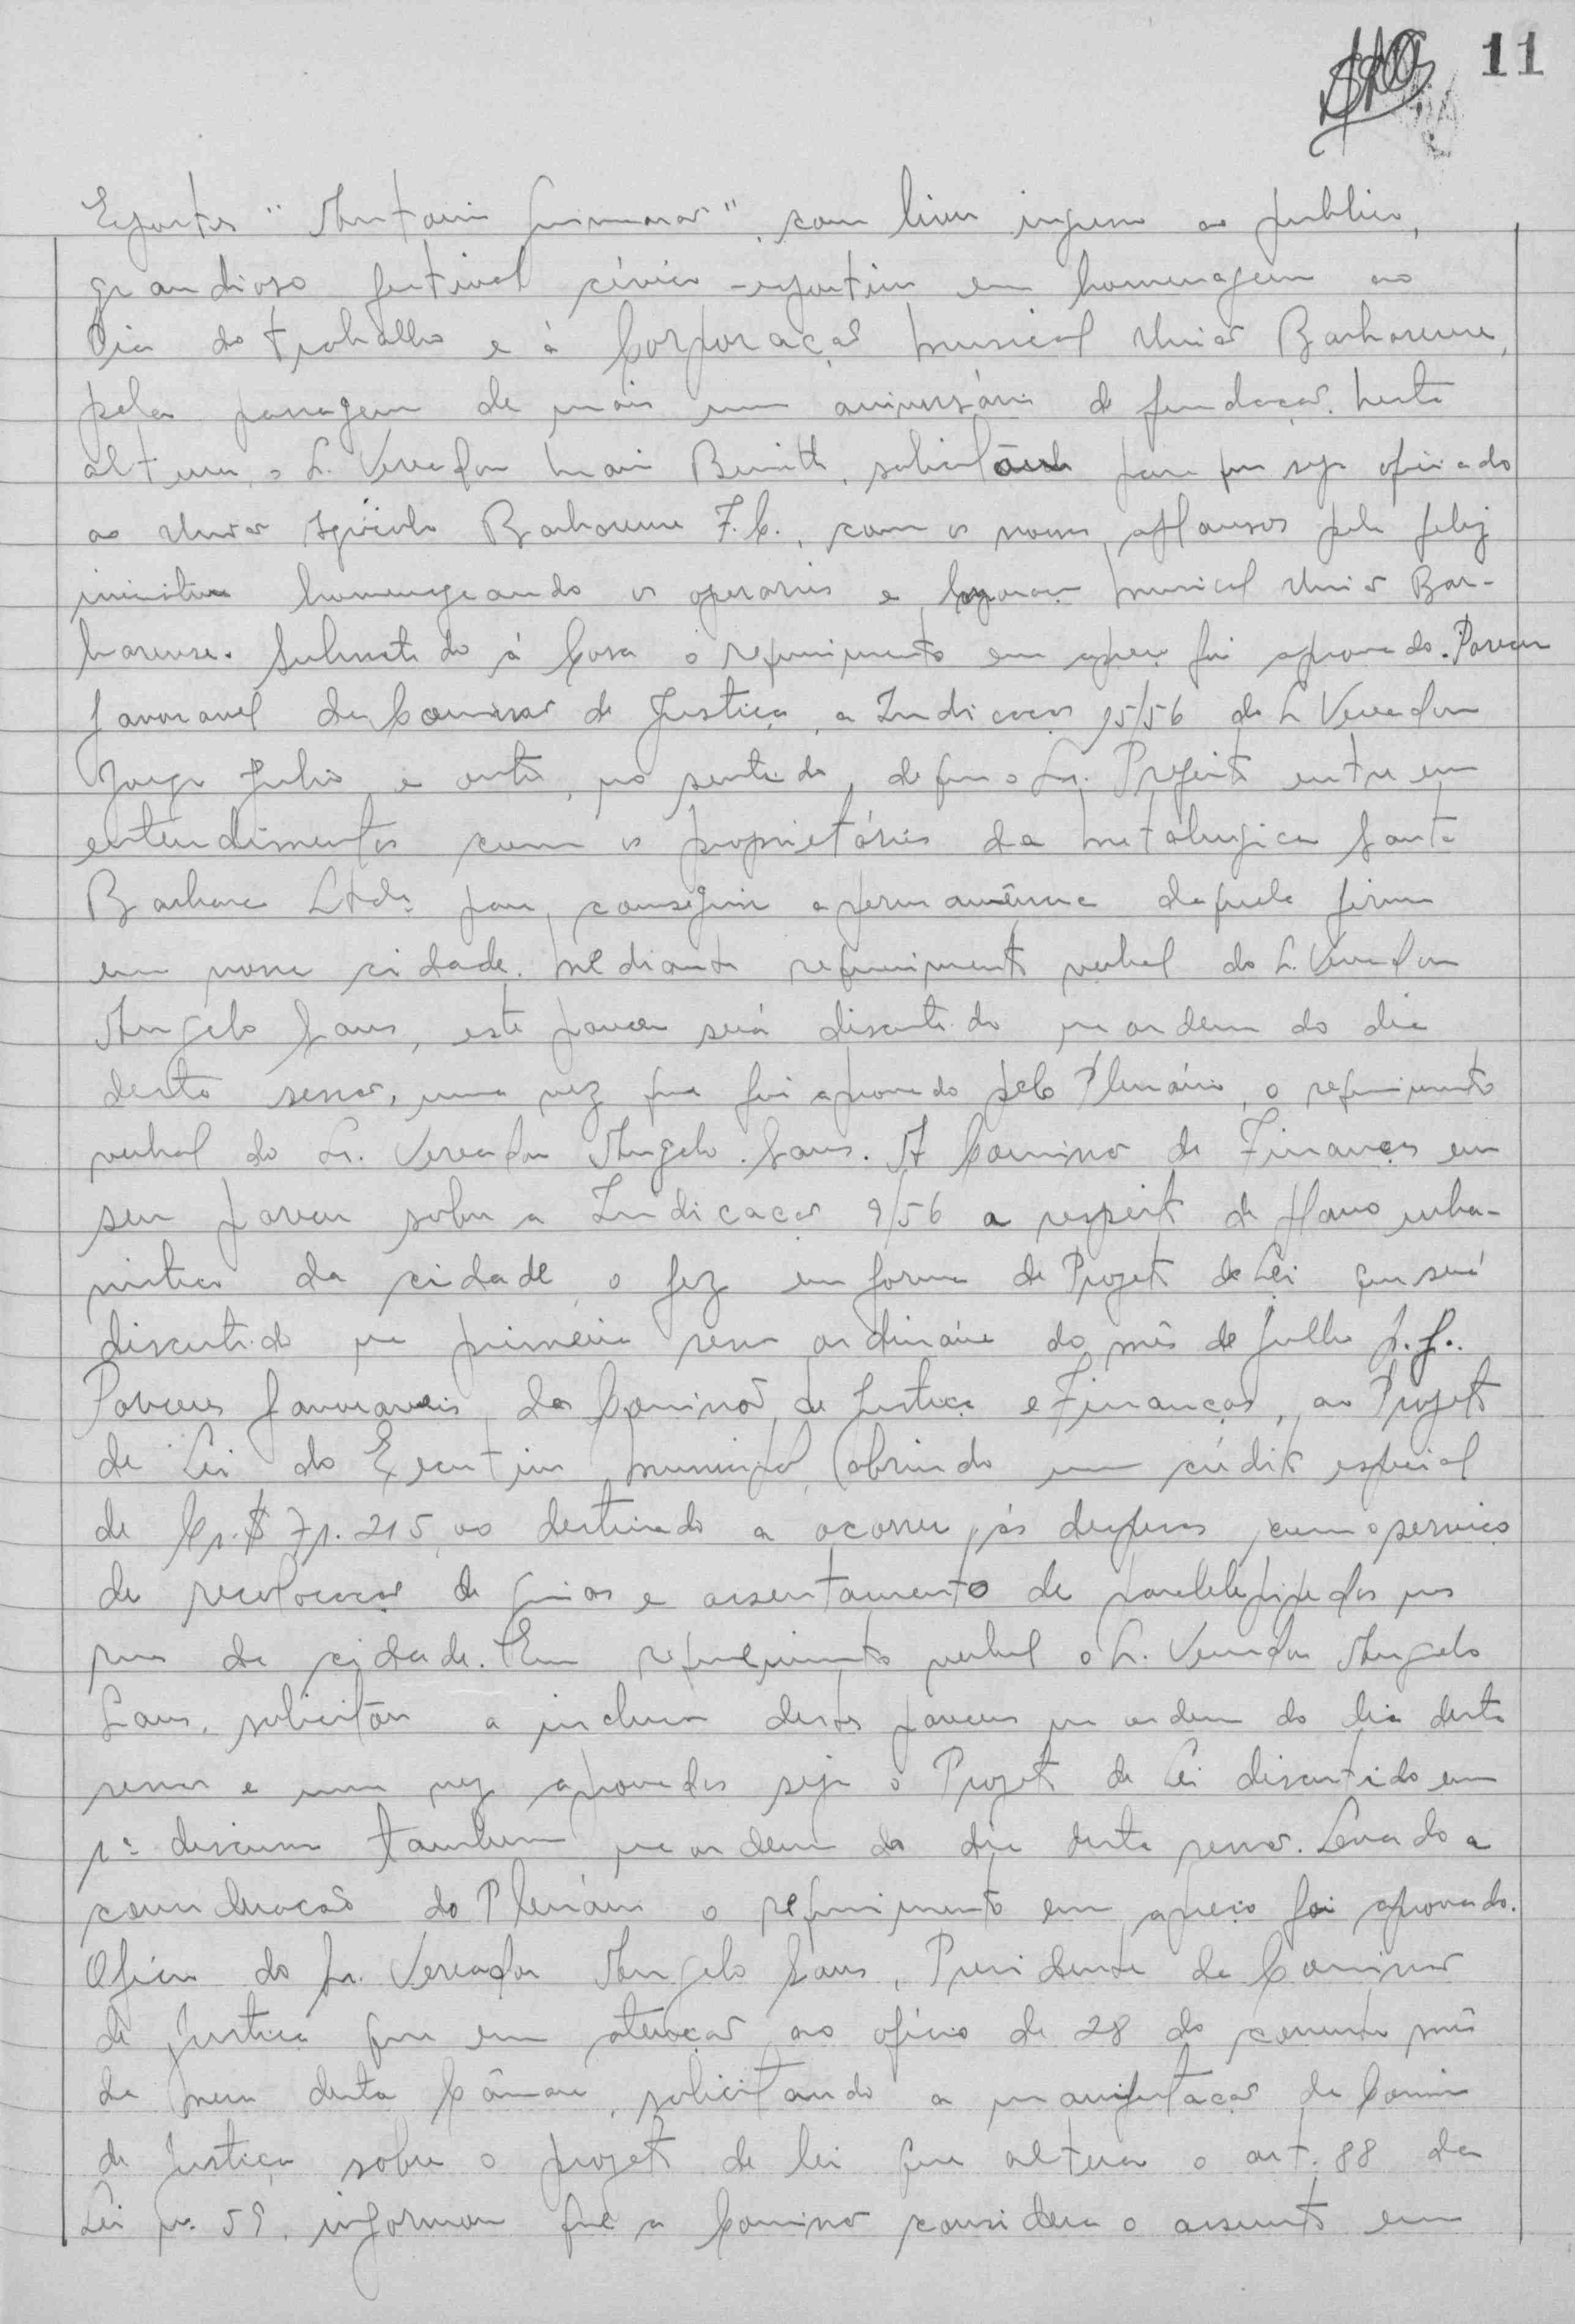 11
Esportes "Antonio Guimarães", com livre ingresso ao publico,
grandioso festival cívico-esportivo em homenagem ao
Dia do trabalho e á Corporação Musical União Barbarense,
pela passagem de mais um aniversário de fundação. Nesta
altura, o Sr. Vereador Mario Benitti, solicitando para que seja oficiado
ao União Agrícola Barbarense F.C., com os nossos aplausos pela feliz
iniciativa homenageando os operarios e Corporação Musical União Bar-
barense. Submetido á Casa o requerimento em apreço foi aprovado. Parecer
favoravel da Comissão de Justiça, a Indicação 15/56 do Sr Vereador
Jorge Julio e outro, no sentido, de que o Sr. Prefeito entre em
entendimentos com os proprietários da Metalurgica Santa
Barbara Ltda. para conseguir a permanência daquela firma
em nossa cidade. Mediante requerimento verbal do Sr. Vereador
Angelo Sans, este parecer será discutido na ordem do dia
desta sessão, uma vez que foi aprovado pelo Plenário, o requerimento
verbal do Sr. Vereador Angelo Sans. A Comissão de Finanças em
seu parecer sobre a Indicação 9/56 a respeito de plano urba-
nistico da cidade, o fez em forma de Projeto de Lei que será
discutido na primeira sessão ordinária do mês de Julho p.f..
Pareceres favoraveis, das Comissões de Justiça e Finanças, ao Projeto
de Lei do Executivo Municipal, abrindo um crédito especial
de Cr.$ 71.215,00 destinado a ocorrer, ás despesas com o serviço
de recolocação de guias e assentamento de paralelepipedos nas
ruas da cidade. Em requerimento verbal o Sr. Vereador Angelo
Sans, solicitou a inclusão destes pareceres na ordem do dia desta
sessão e uma vez aprovados seja o Projeto de Lei discutido em
1ª discussão tambem na ordem do dia desta sessão. Levado a
consideração do Plenário o requerimento em apreço foi aprovado.
Oficio do Sr. Vereador Angelo Sans, Presidente da Comissão
de Justiça que em atenção ao ofício de 28 do corrente mês
da mesa desta Câmara, solicitando a manifestação da Comissão
de Justiça sobre o projeto de lei que altera o art. 88 da
Lei nº. 59, informou que a Comissão considera o assunto em